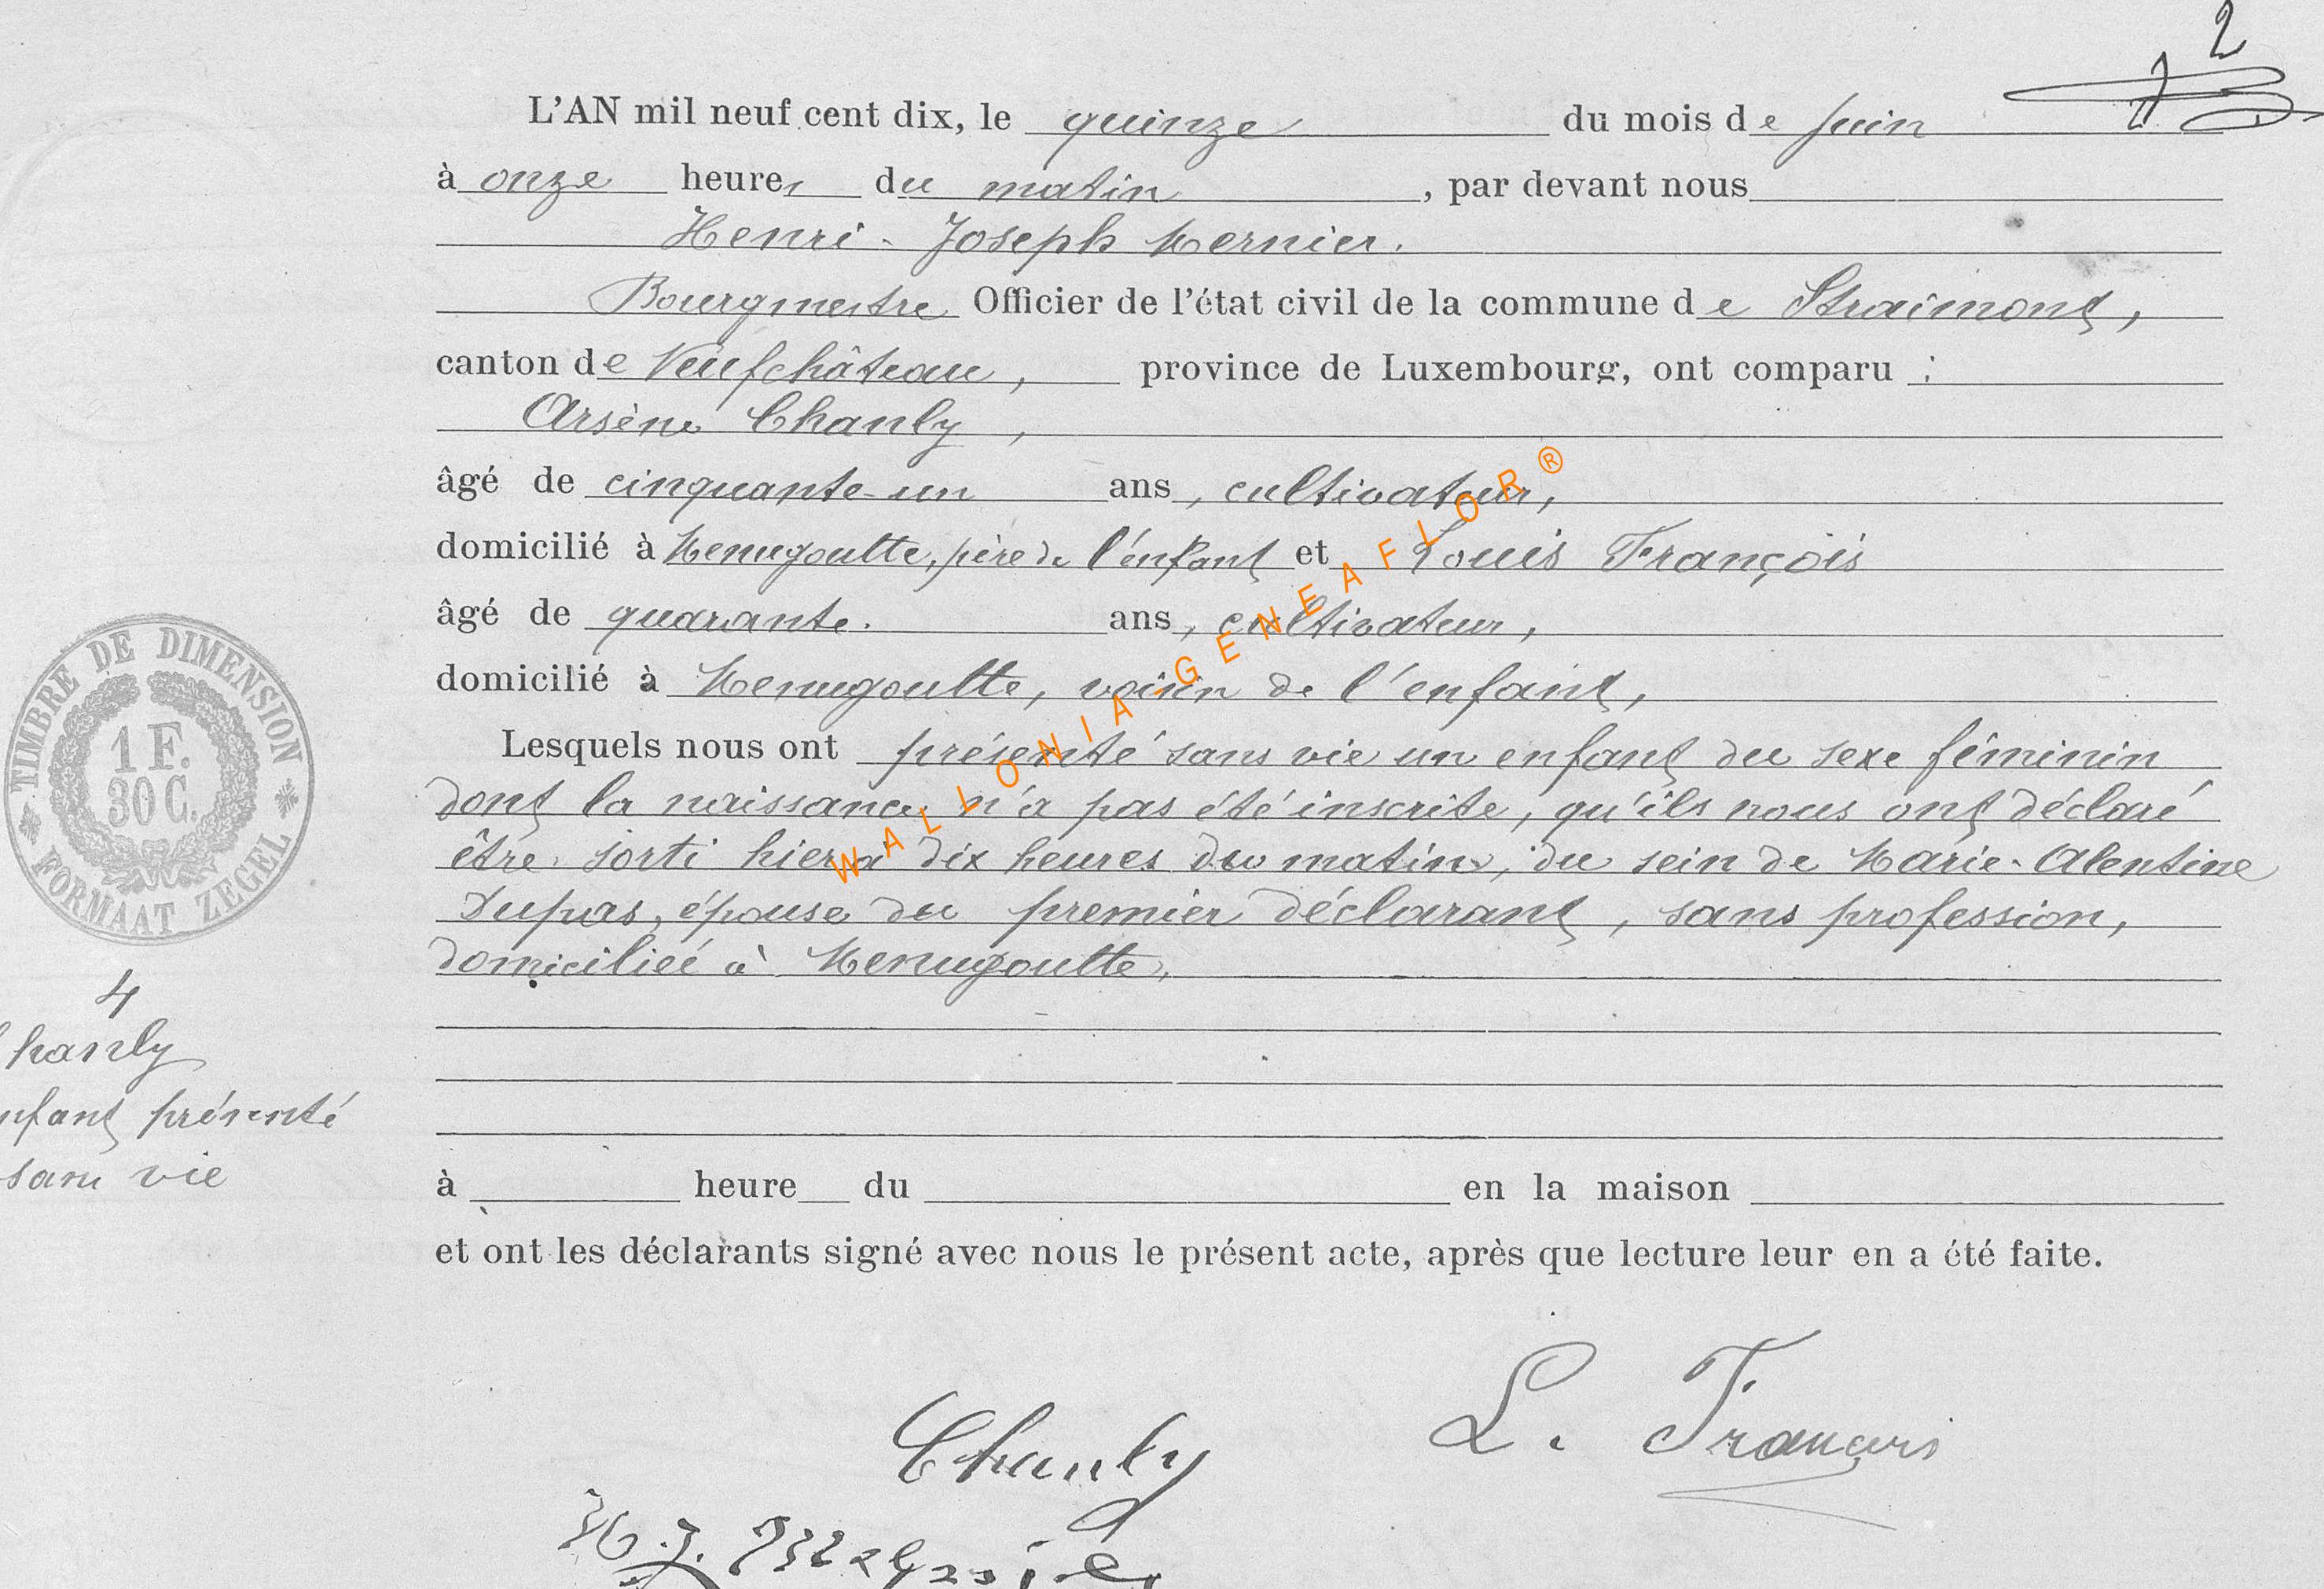 2
L'AN mil neuf cent dix, le quinze du mois de Juin
à onze heures du matin, par devant nous
Henri-Joseph Mernier.
Bourgmestre Officier de l'état civil de la commune de Straimont,
canton de Neufchâteau, province de Luxembourg, ont comparu :
Arsène Chanly,
âgé de cinquante-un ans, cultivateur,
domicilié à Menugoutte, père de l'enfant et Louis François
âgé de quarante. ans, cultivateur,
domicilié à Menugoutte, voisin de l'enfant,
Lesquels nous ont présenté sans vie un enfant du sexe féminin
dont la naissance n'a pas été inscrite, qu'ils nous ont déclaré
être sorti hier à dix heures du matin, du sein de Marie-Alentine
Dupas, épouse du premier déclarant, sans profession,
domiciliée à Menugoutte,
à heure du en la maison
et ont les déclarants signé avec nous le présent acte, après que lecture leur en a été faite.
TIMBRE DE DIMENSION
1 F.
30 C.
FORMAAT ZEGEL
4
hanly
nfant présenté
sans vie
Chanly
L. François
H. J. Mernier
WALLONIA-GENEAFLOR®